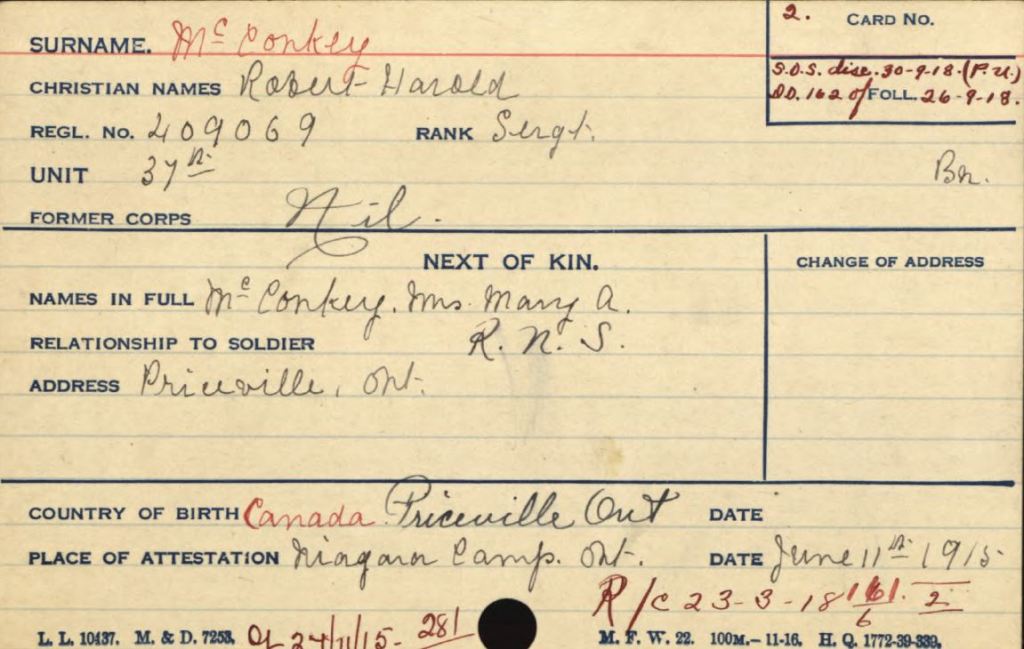 2. CARD NO.
SURNAME. McConkey
S.O.S. disc. 30-9-18 (P.U.)
CHRISTIAN NAMES Robert Harold
D.D. 162 of FOLL. 26-9-18.
REGL. No. 409069 RANK Sergt.
UNIT 37th Bn.
FORMER CORPS Nil.
NEXT OF KIN. CHANGE OF ADDRESS
NAMES IN FULL McConkey, Mrs. Mary A.
RELATIONSHIP TO SOLDIER R. N. S.
ADDRESS Priceville, Ont.
COUNTRY OF BIRTH Canada Priceville Ont DATE
PLACE OF ATTESTATION Niagara Camp. Ont. DATE June 11th 1915
R/c 23-3-18 161. 2
6
L. L. 10437. M. & D. 7253. 27/11/15- 281 M. F. W. 22. 100M.-11-16. H. Q. 1772-39-339.